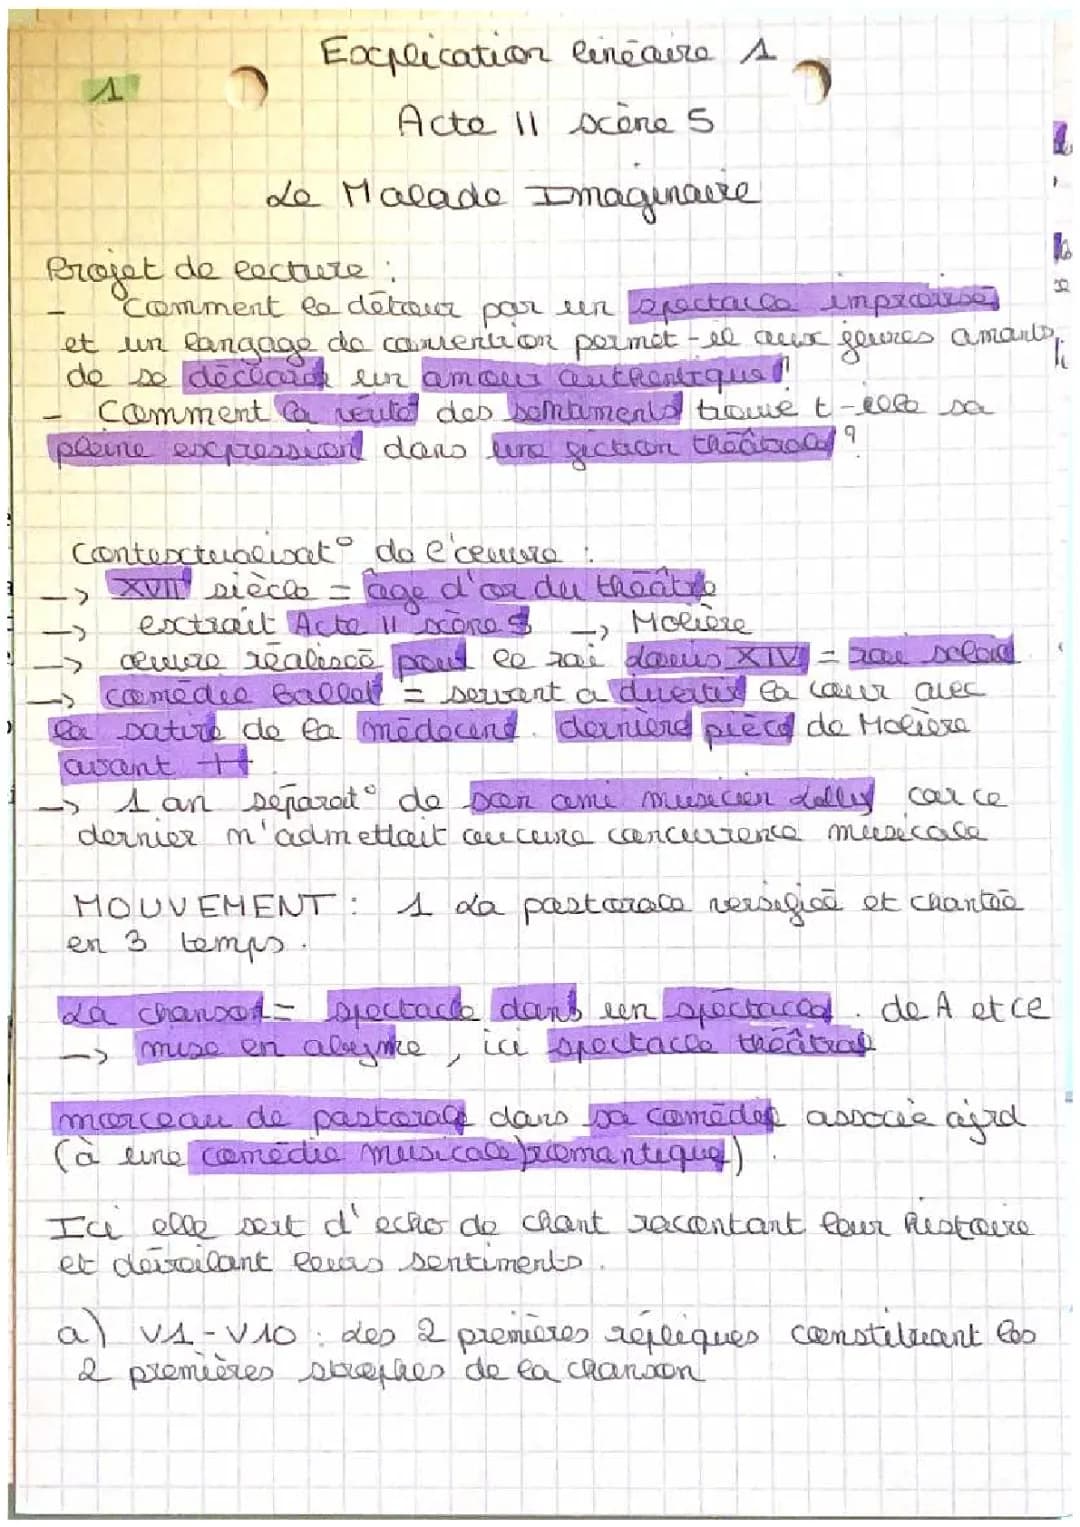 Explication linéaire 1
1
Acte II scène 5
Le Malade Imaginaire
Projet de lecture :
- Comment le détour par un spectacle improvisé
et un langage de convention permet-il aux jeunes amants
de se déclarer un amour authentique ?
- Comment la vérité des sentiments trouve t-elle sa
pleine expression dans une fiction théâtrale ?
Contextualisat° de l'œuvre :
-> XVII siècle = âge d'or du théâtre
-> extrait Acte II scène 5 -> Molière
-> œuvre réalisée pour le roi Louis XIV = roi soleil
-> comédie Ballet = servant a divertir la cour avec
la satire de la médecine. dernière pièce de Molière
avant ++
-> 1 an séparat° de son ami musicien Lully car ce
dernier n'admettait aucune concurrence musicale
MOUVEMENT : 1 La pastorale versifiée et chantée
en 3 temps.
La chanson = spectacle dans un spectacle. de A et ce
-> mise en abyme, ici spectacle théâtral
morceau de pastorale dans sa comédie associé ajrd
(à une comédie musicale) romantique)
Ici elle sert d'echo de chant racontant leur histoire
et dévoilant leurs sentiments.
a) V1-V10 : Les 2 premières répliques constituant les
2 premières strophes de la chanson